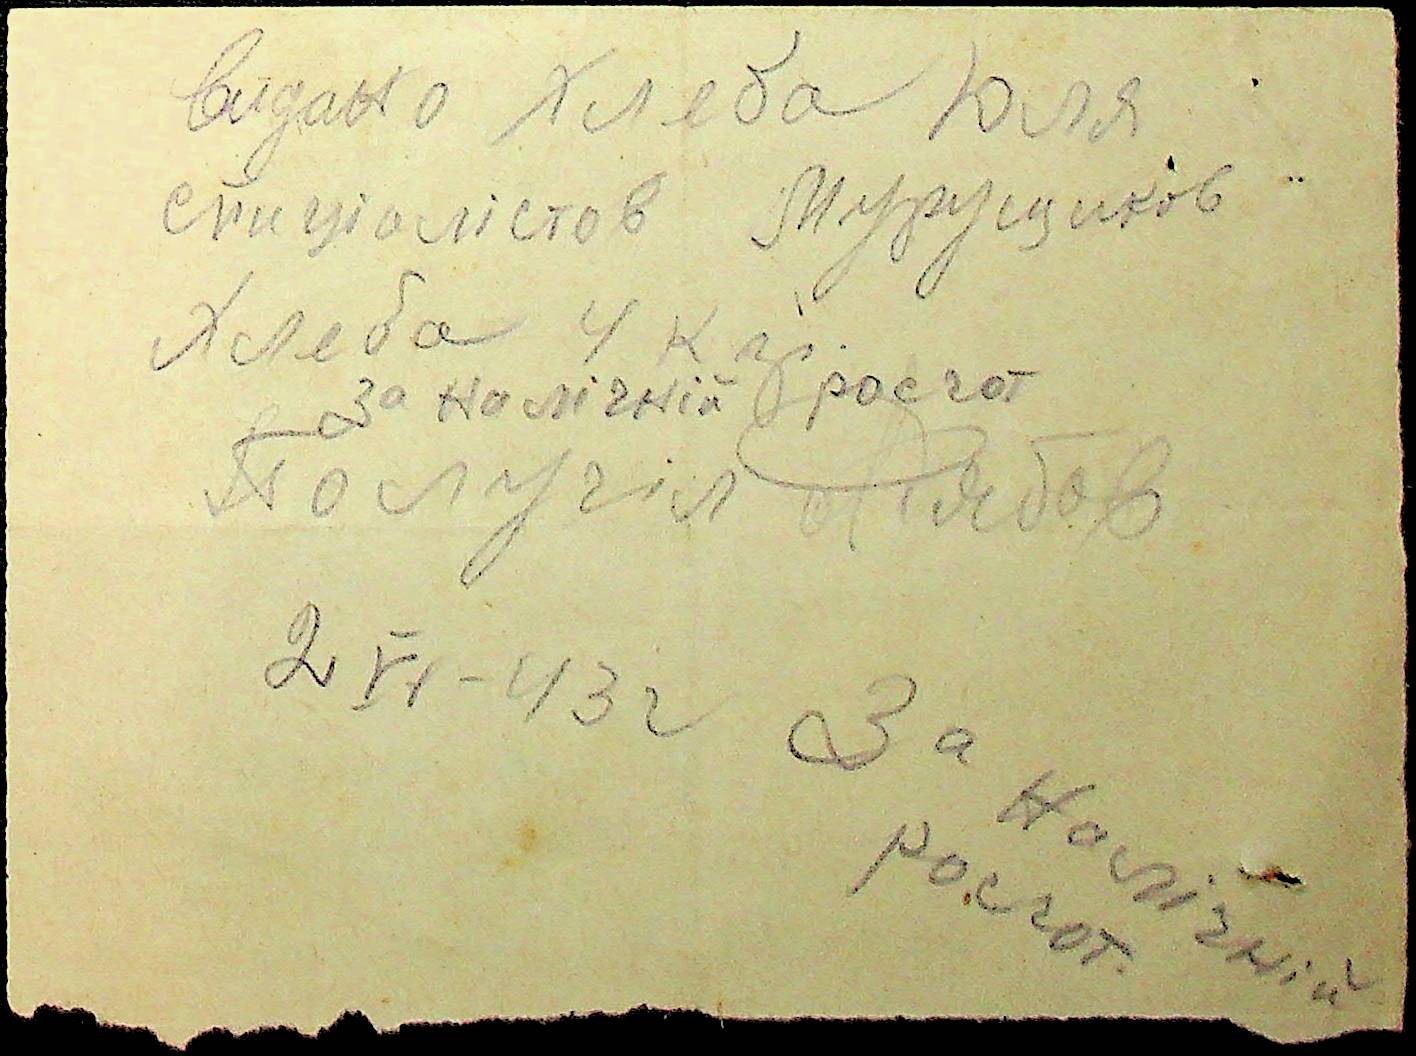 Видано хлеба для
специалістов Мурущиков
Хлеба 4 кг.
За налічній росчот
Получіл Рябов
2 VI - 43 г
За налічній
росчот.